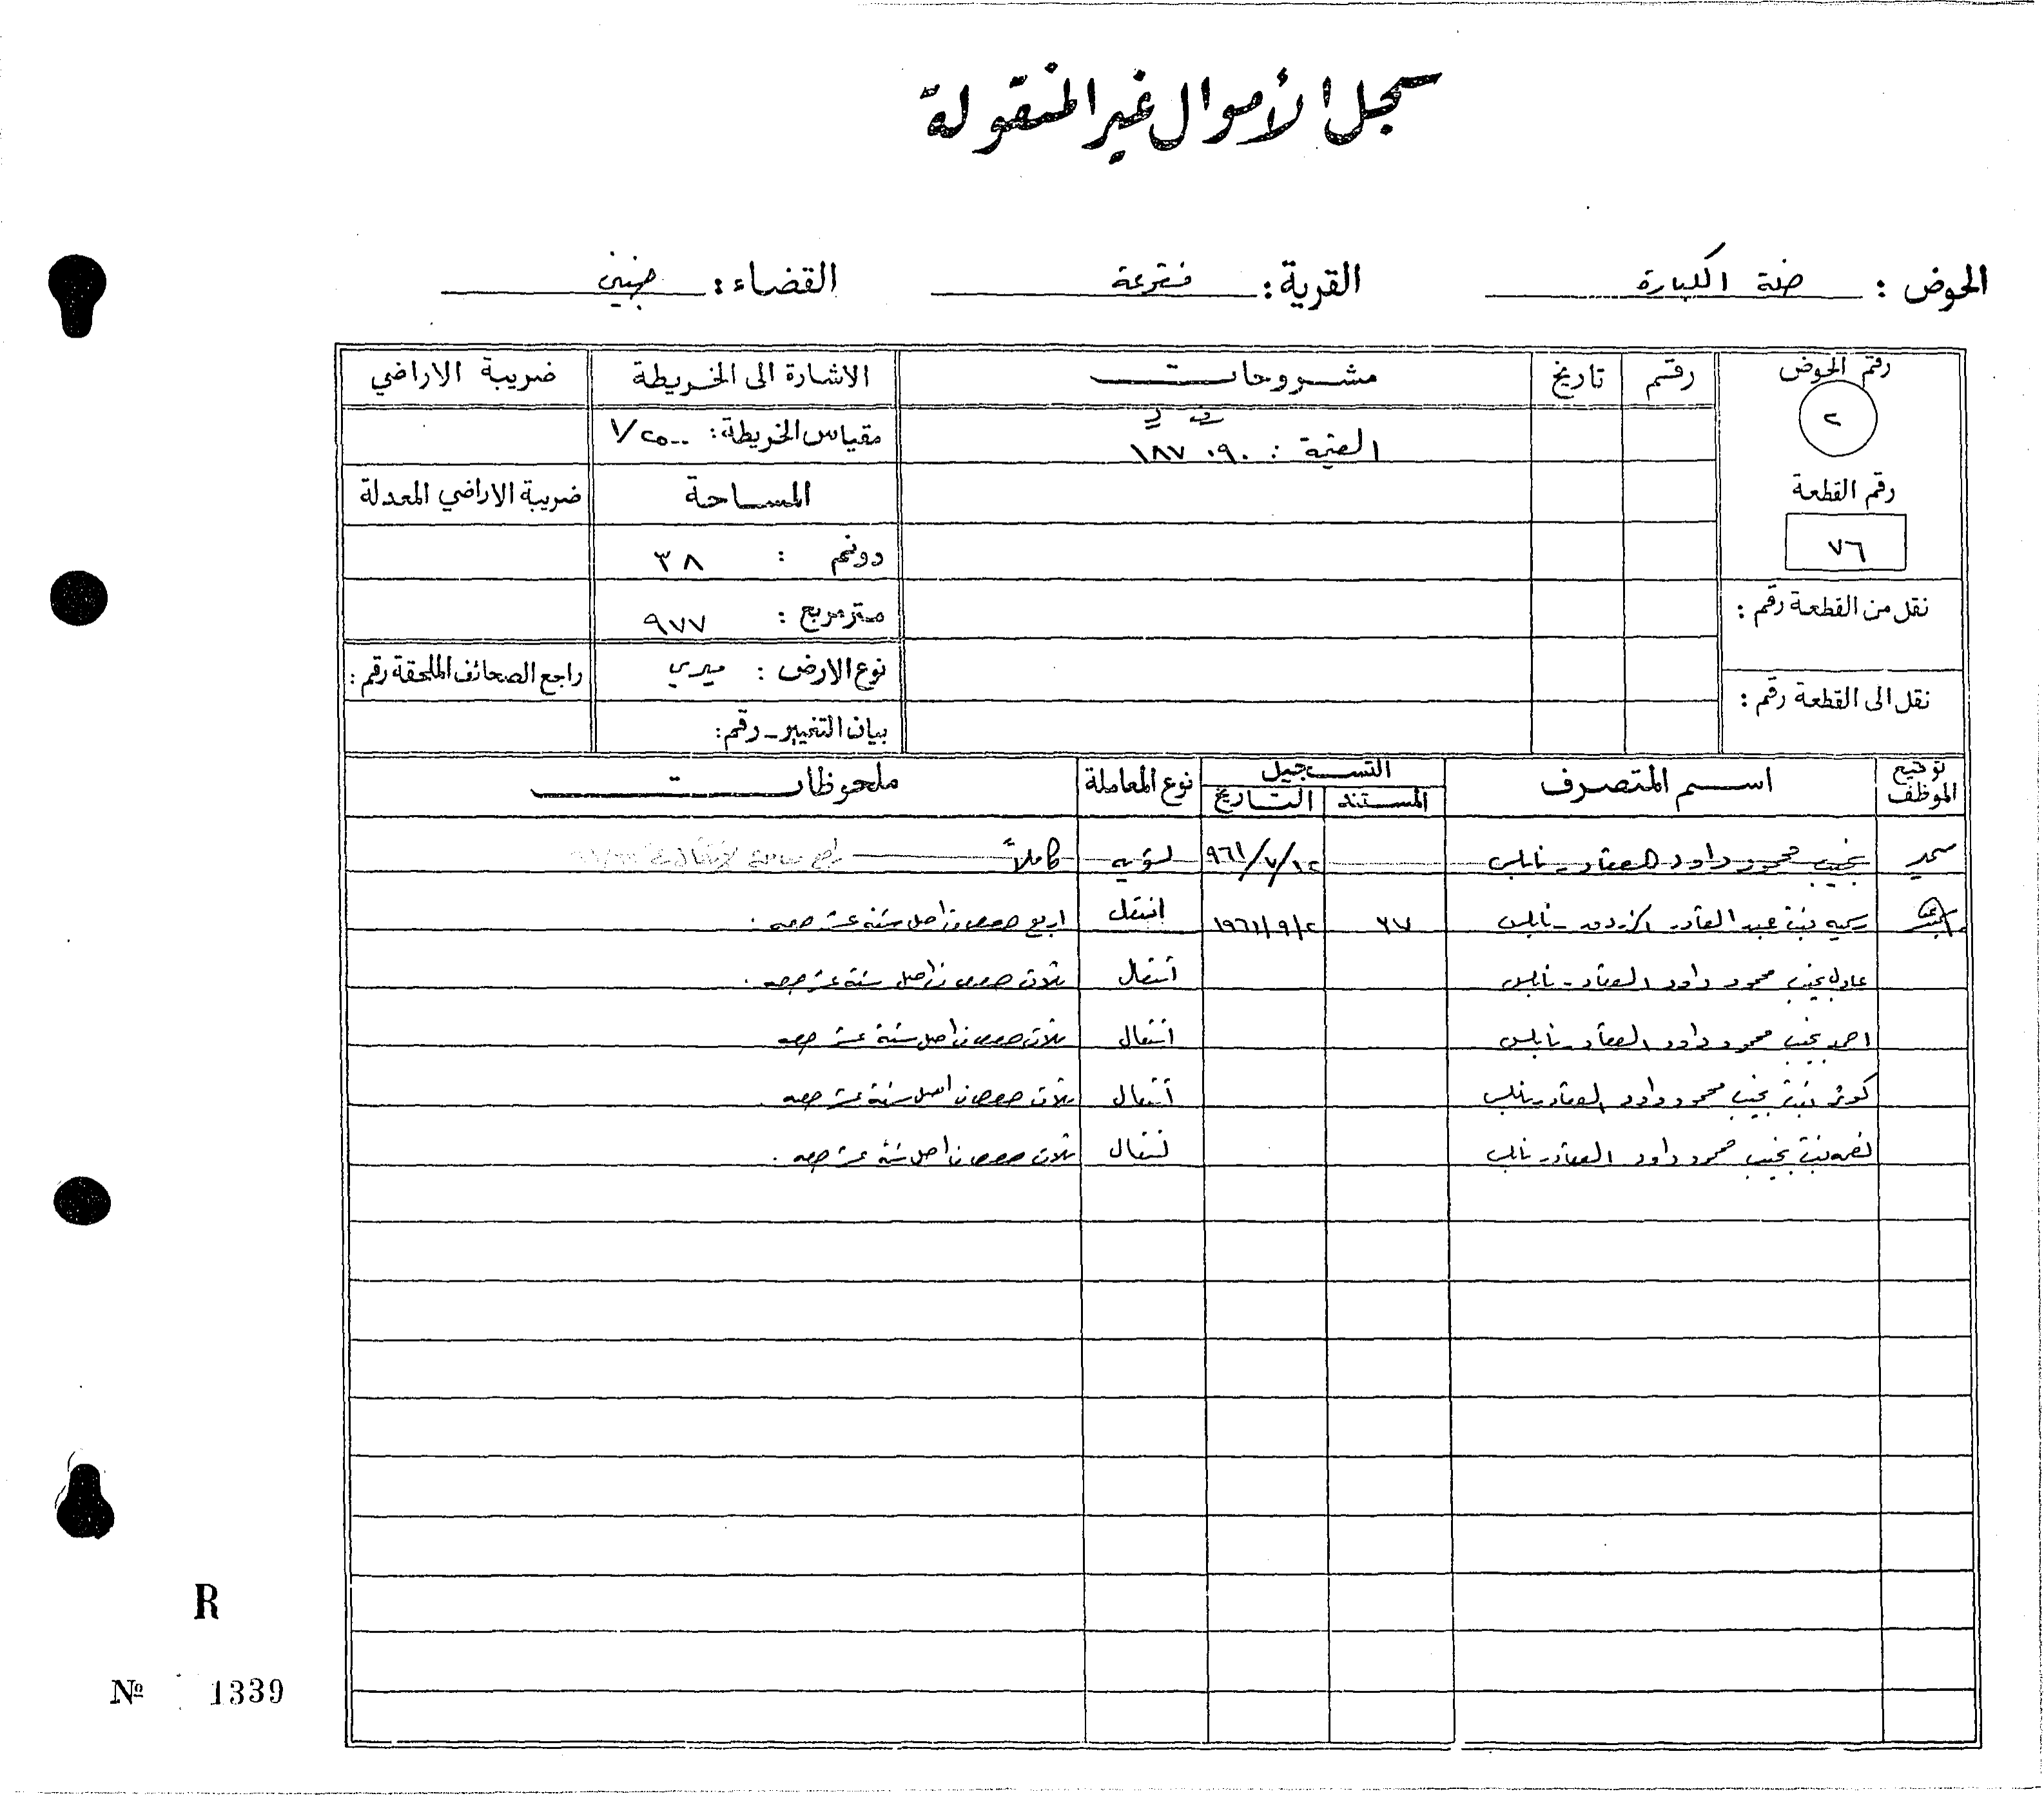 سجل الأموال غير المنقولة
الحوض : الكبارة القرية : القضاء : جنين
رقم الحوض رقم تاريخ مشروحات الاشارة الى الخريطة ضريبة الاراضي
٢ مقياس الخريطة : ١/٢٥٠٠
القيمة : ٠٩٠ ١٨٧
رقم القطعة المساحة ضريبة الاراضي المعدلة
٧٦ دونم : ٣٨
نقل من القطعة رقم : متر مربع : ٩٧٧
نوع الارض : ميري راجع الصحائف الملحقة رقم :
نقل الى القطعة رقم :
بيان التغيير - رقم :
توقيع الموظف اسم المتصرف التسجيل نوع المعاملة ملحوظات
المستند التاريخ
نجيب محمود داود العقاد - نابلس ١٢/٧/٩٦١ تسويه كاملاً
بنت عبد القادر - نابلس ٦٧ ٢/٩/١٩٦١ انتقل اربع حصص من اصل ستة عشر حصه .
عادل نجيب محمود داود العقاد - نابلس انتقال ثلاث حصص من اصل ستة عشر حصه .
احمد نجيب محمود داود العقاد - نابلس انتقال ثلاث حصص من اصل ستة عشر حصه
كوثر بنت نجيب محمود داود العقاد - نابلس انتقال ثلاث حصص من اصل ستة عشر حصه .
بنت نجيب محمود داود العقاد - نابلس انتقال ثلاث حصص من اصل ستة عشر حصه .
R
№ 1339